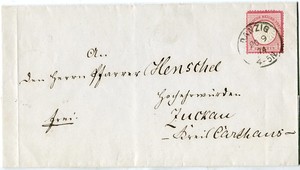 DANZIG
9
74
4-5N.
An
den Herrn Pfarrer Henschel
Hochehrwürden
frei.
Zuckau
Kreis Carthaus